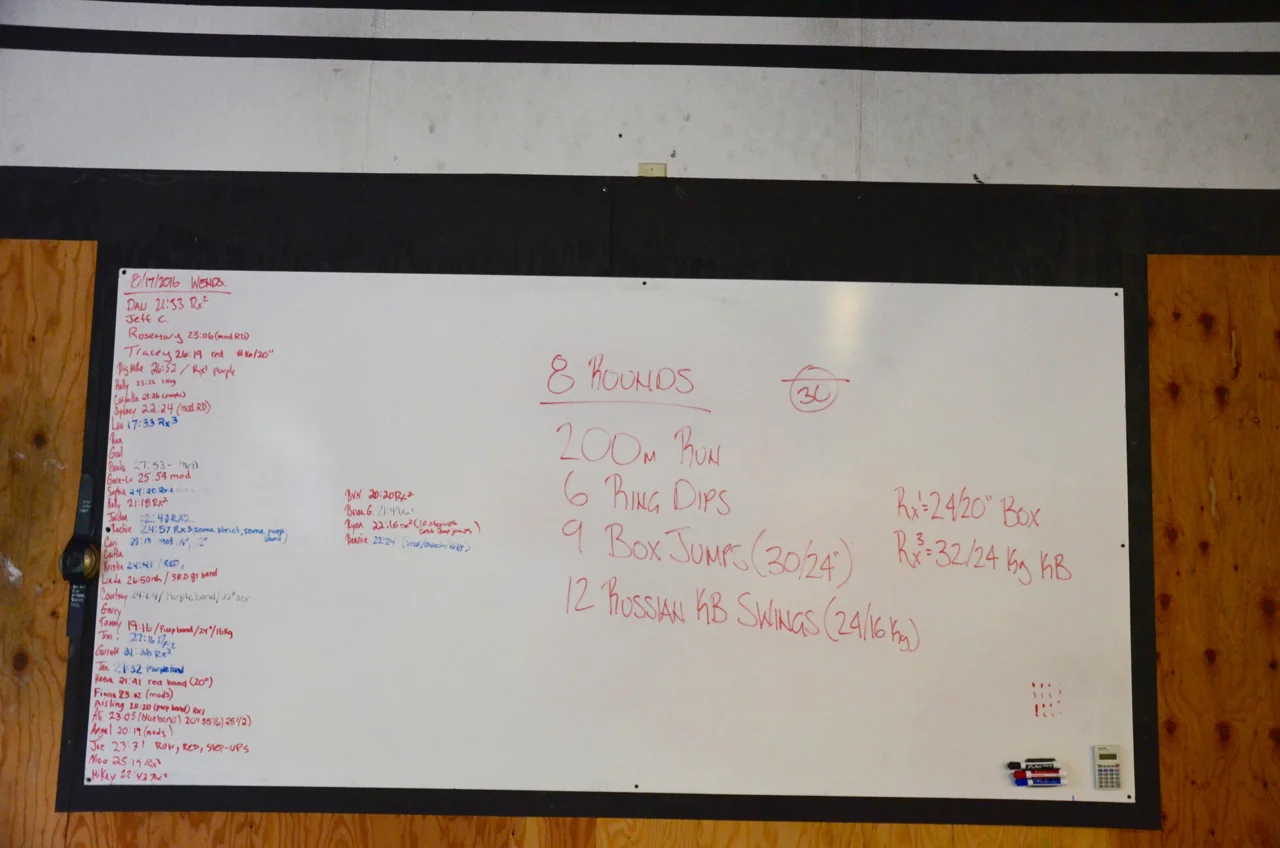 8/17/2016 WENDS.
DAN 21:33 Rx²
Jeff C.
Rosemary 23:06 (mod RD)
Tracey 26:19 red #16/20"
Big Mike 26:52 / Rx¹ purple
Holly
Sydney 22:24 (mod RD)
Lou 17:33 Rx3
Gail
Paula 27:53
25:54 mod
Sophia 24:20 Rx
Kelly 21:18 Rx²
Jordan 22:40 RX2
Rachie 24:57 Rx3 some strict, some purp band
Cari mod,
Caitlin
Kristie 24:41 / RED,
Linda 26:50 / 3RD gr band
Courtney / Purple band /
Gerry
Tammy 19:16 / Purp band / 24" / 16kg
Toni: 22:16
Garrett Rx²
Jen 21:32 Purple band
21:41 red band (20")
Fiona 23:02 (mods)
Aisling 20:20 (purp band) RX1
Ali 23:05 (blue band) 20"
Angel 20:19 (mods)
Joe 23:31 ROW, RED, STEP-UPS
Nico 25:19 Rx²
Mikey 22:42 Rx²
20:20 Rx²
Brian G.
Ryan 22:16 rx² (10 step ups
22:24
8 ROUNDS
30
200m RUN
6 RING DIPS
9 BOX JUMPS (30/24")
12 RUSSIAN KB SWINGS (24/16 Kg)
Rx¹=24/20" BOX
Rx³=32/24 Kg KB